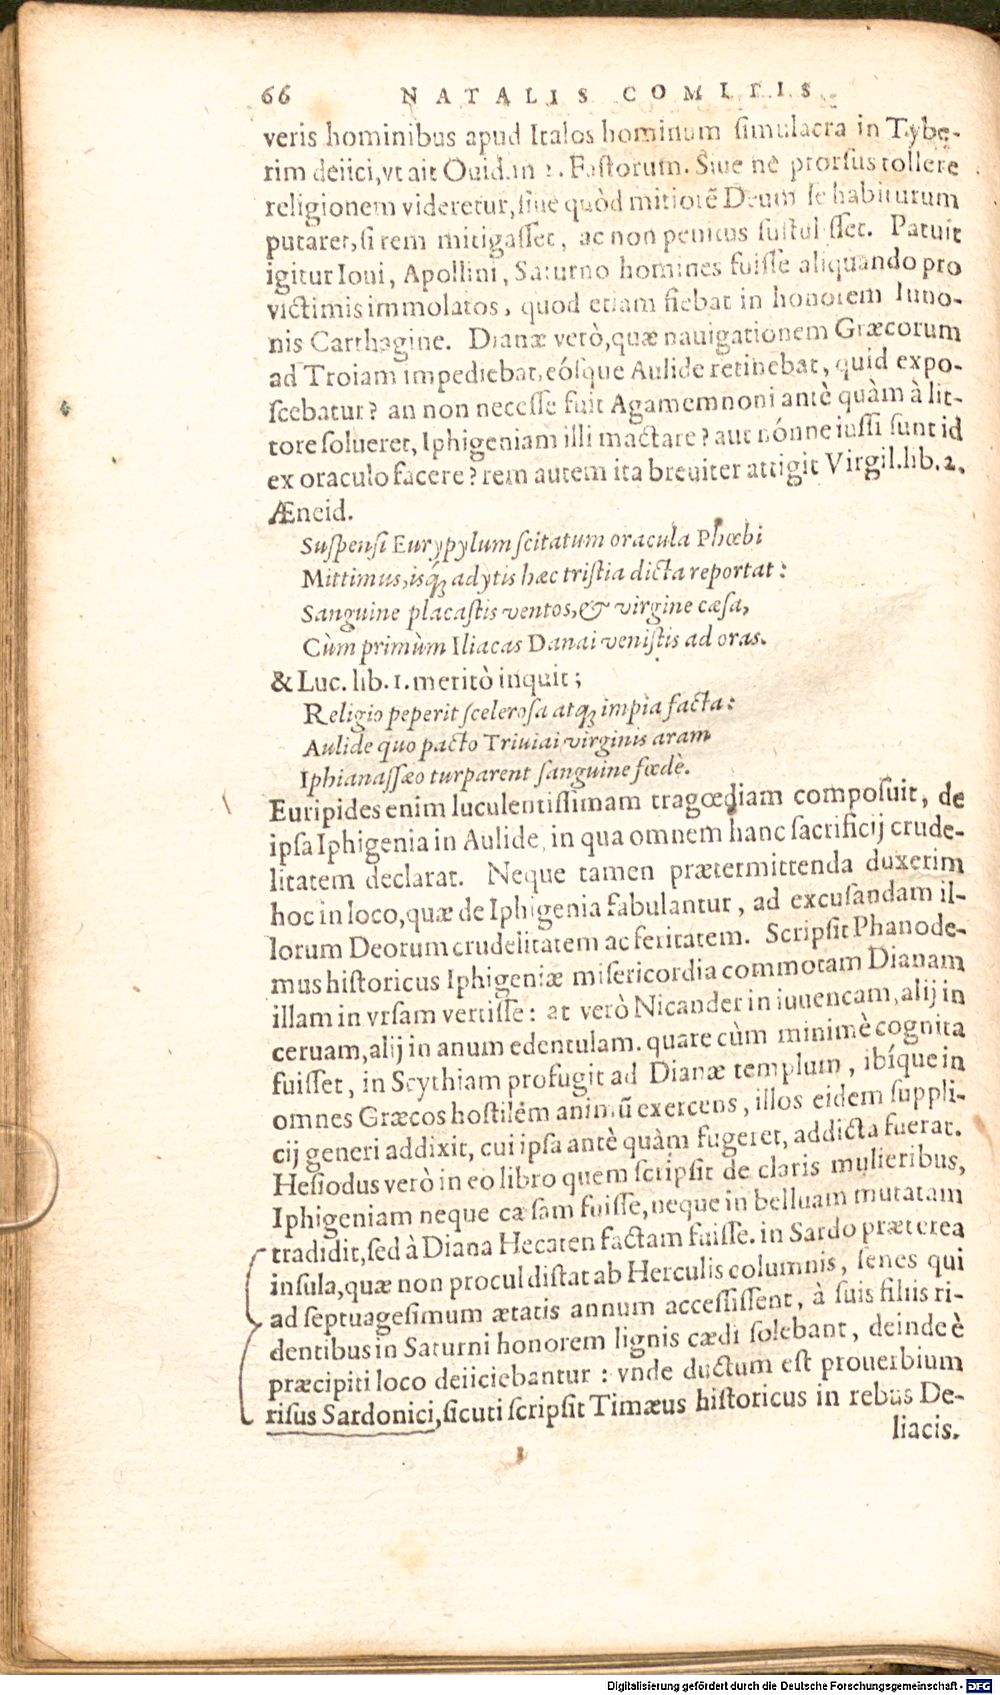 66 NATALIS COMITIS
veris hominibus apud Italos hominum simulacra in Tybe-
rim deiici, vt ait Ouid. in 2. Fastorum. Siue ne prorsus tollere
religionem videretur, siue quòd mitiorẽ Deum se habiturum
putaret, si rem mitigasset, ac non penitus sustulisset. Patuit
igitur Ioui, Apollini, Saturno homines fuisse aliquando pro
victimis immolatos, quod etiam fiebat in honorem Iuno-
nis Carthagine. Dianæ verò, quæ nauigationem Græcorum
ad Troiam impediebat, eósque Aulide retinebat, quid expo-
scebatur? an non necesse fuit Agamemnoni antè quàm à lit-
tore solueret, Iphigeniam illi mactare? aut nónne iussi sunt id
ex oraculo facere? rem autem ita breuiter attigit Virgil. lib. 2.
Æneid.
Suspensi Eurypylum scitatum oracula Phœbi
Mittimus, isq́ꝫ adytis hæc tristia dicta reportat:
Sanguine placastis ventos, & virgine cæsa,
Cùm primùm Iliacas Danai venistis ad oras.
& Luc. lib. 1. meritò inquit;
Religio peperit scelerosa atqꝫ impia facta:
Aulide quo pacto Triuiai virginis aram
Iphianassæo turparent sanguine fœdè.
Euripides enim luculentissimam tragœdiam composuit, de
ipsa Iphigenia in Aulide, in qua omnem hanc sacrificij crude-
litatem declarat. Neque tamen prætermittenda duxerim
hoc in loco, quæ de Iphigenia fabulantur, ad excusandam il-
lorum Deorum crudelitatem ac feritatem. Scripsit Phanode-
mus historicus Iphigeniæ misericordia commotam Dianam
illam in vrsam vertisse: at verò Nicander in iuuencam, alij in
ceruam, alij in anum edentulam. quare cùm minimè cognita
fuisset, in Scythiam profugit ad Dianæ templum, ibíque in
omnes Græcos hostilem animũ exercens, illos eidem suppli-
cij generi addixit, cui ipsa antè quàm fugeret, addicta fuerat.
Hesiodus verò in eo libro quem scripsit de claris mulieribus,
Iphigeniam neque cæsam fuisse, neque in belluam mutatam
tradidit, sed à Diana Hecaten factam fuisse. in Sardo præterea
insula, quæ non procul distat ab Herculis columnis, senes qui
ad septuagesimum ætatis annum accessissent, à suis filiis ri-
dentibus in Saturni honorem lignis cædi solebant, deinde è
præcipiti loco deiiciebantur: vnde ductum est prouerbium
risus Sardonici, sicuti scripsit Timæus historicus in rebus De-
liacis.
Digitalisierung gefördert durch die Deutsche Forschungsgemeinschaft - DFG